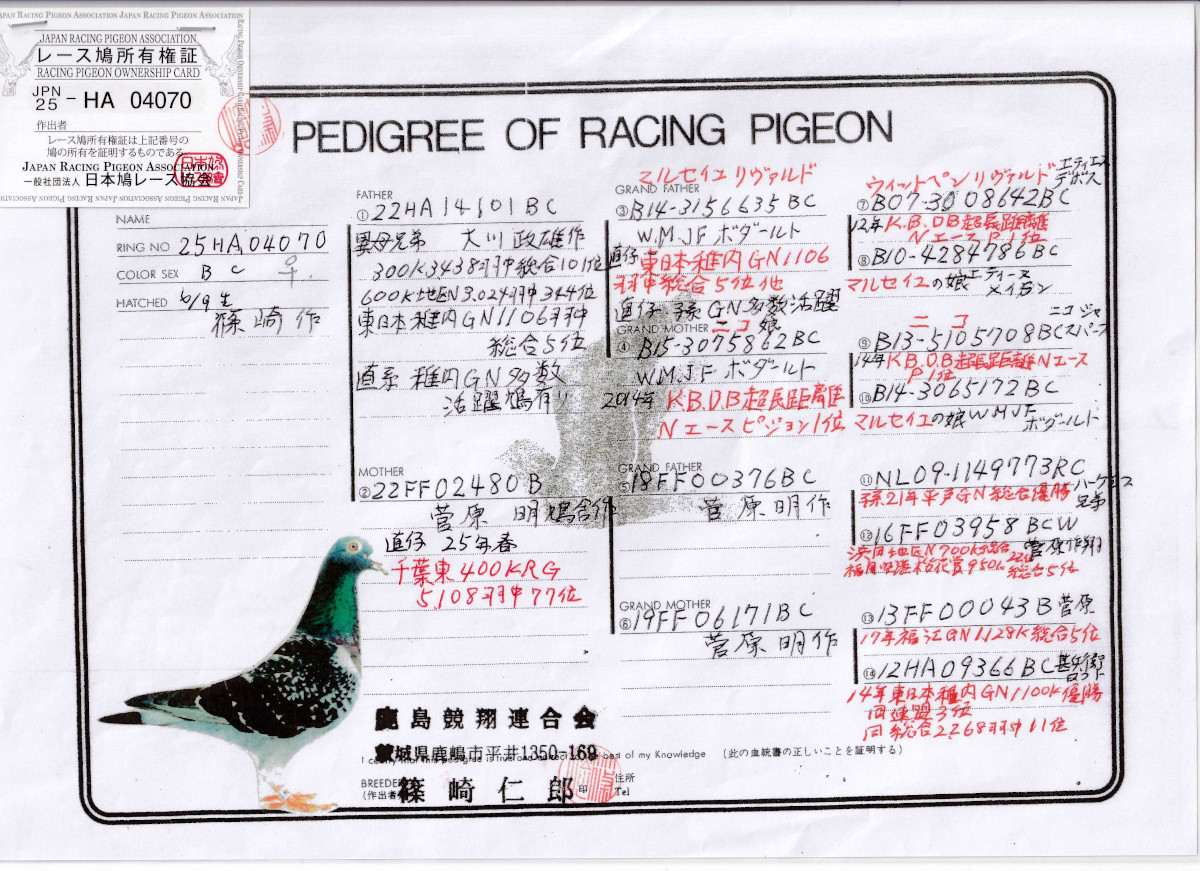 JAPAN RACING PIGEON ASSOCIATION
レース鳩所有権証
RACING PIGEON OWNERSHIP CARD
JPN
25 - HA 04070
作出者
レース鳩所有権証は上記番号の
鳩の所有を証明するものである。
JAPAN RACING PIGEON ASSOCIATION
一般社団法人 日本鳩レース協会
PEDIGREE OF RACING PIGEON
NAME
RING NO 25HA04070
COLOR SEX BC ♀
HATCHED 6/9生
篠崎作
FATHER
①22HA14601BC
異母兄弟 大川政雄作
300K3438羽中総合101位
600K地区N3.024羽中344位
東日本稚内GN1106羽中
総合5位
直系 稚内GN多数
活躍鳩有り
MOTHER
②22FF02480B
菅原 明鳩舎作
直仔 25年春
千葉東400KRG
5,108羽中77位
マルセイユ リヴァルド
GRAND FATHER
③B14-3156635BC
W.M.JF ボダールト
直仔 東日本稚内GN1106
羽中総合5位他
直仔 孫GN多数活躍
GRAND MOTHER ニコ 娘
④B15-3075862BC
W.M.J.F ボダールト
2014年 K.B.D.B超長距離
Nエースピジョン1位
GRAND FATHER
⑤18FF00376BC
菅原明作
GRAND MOTHER
⑥19FF06171BC
菅原明作
ウィットペン リヴァルド
エティエンス
デボス
⑦B07-3008642BC
12年K.B.DB超長距離
NエースP.1位
⑧B10-4284786BC
マルセイユの娘
ニコ ニコ ジャ
スパース
⑨B13-5105708BC
14年K.B.DB超長距離Nエース
P.1位
⑩B14-3065172BC
マルセイユの娘WMJF
ボダールト
⑪NL09-1149773RC
孫21年平戸GN総合優勝
兄弟
⑫16FF03958BCW
菅原作翔
総合5位
⑬13FF00043B菅原
17年福江GN1128K総合5位
⑭12HA09366BC
14年東日本稚内GN1100K優勝
同連盟3位
同総合2268羽中11位
鹿島競翔連合会
茨城県鹿嶋市平井1350-169
best of my Knowledge (此の血統書の正しいことを証明する)
BREEDER
(作出者) 篠崎仁郎 印
住所
Tel